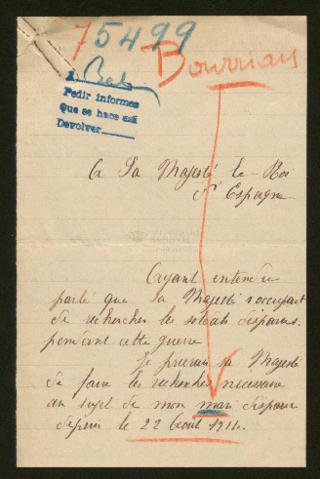 75499
Bournias
Pedir informes
Que se hace así
Devolver
A Sa Majesté le Roi
d'Espagne
Ayant entendu
parlé que sa Majesté s'occupait
de rechercher les soldats disparus
pendant cette guerre
Je sa Majesté
de faire les recherches nécessaire
au sujet de mon mari disparu
depuis le 22 Aout 1914.